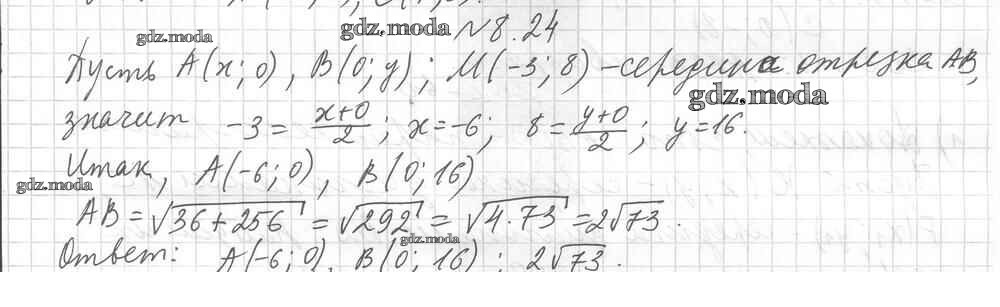 №8.24
Пусть A(x; 0), B(0; y); M(-3; 8) - середина отрезка AB,
значит -3 = (x+0)/2; x = -6; 8 = (y+0)/2; y = 16.
Итак, A(-6; 0), B(0; 16)
AB = √(36+256) = √292 = √(4·73) = 2√73.
Ответ: A(-6; 0), B(0; 16); 2√73.
gdz.moda
gdz.moda
gdz.moda
gdz.moda
gdz.moda